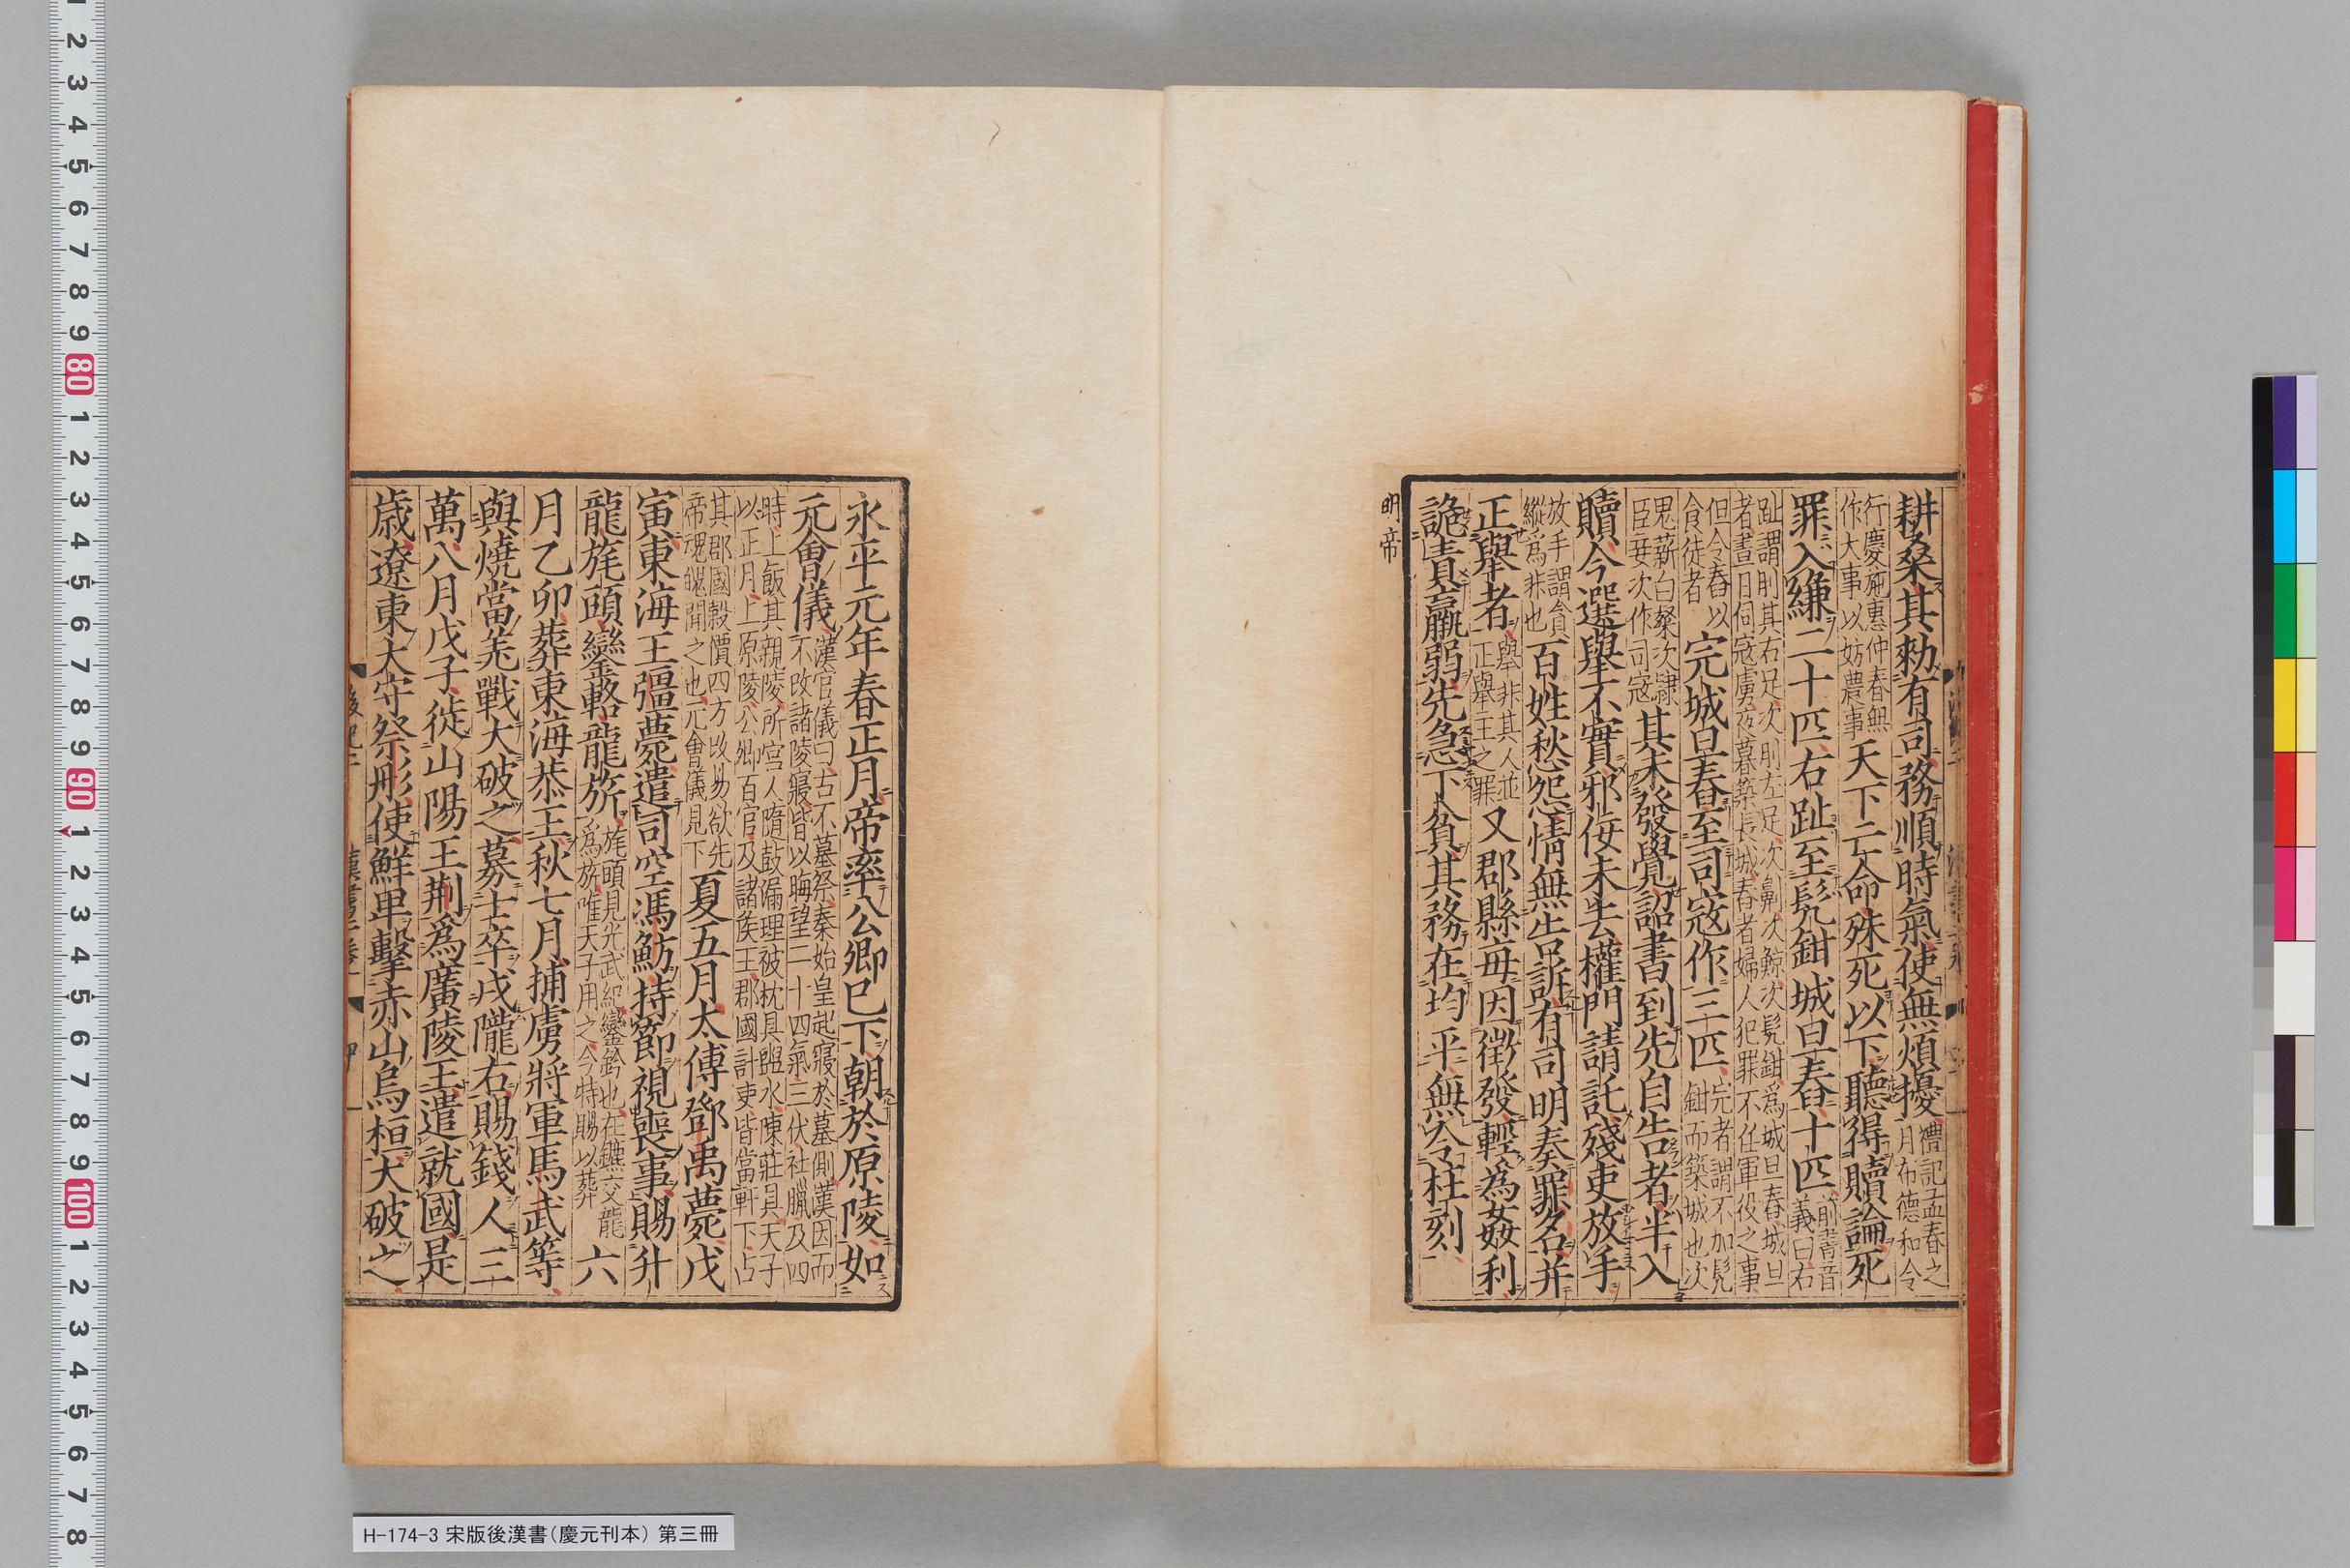 耕桑其勑有司務順時氣使無煩擾禮記孟春之月布德和令
行慶施惠仲春無作大事以妨農事天下亡命殊死以下聽得贖論死
罪入縑二十匹右趾至髡鉗城旦舂十匹前書音義曰右
趾謂刖其右足次刖左足次劓次黥次髡鉗爲城旦舂城旦者晝日伺寇虜夜暮築長城舂者婦人犯罪不任軍役之事
但令舂以食徒者完城旦舂至司寇作三匹完者謂不加髡鉗而築城也次
鬼薪白粲次隷臣妾次作司寇其未發覺詔書到先自告者半入
贖今選舉不實邪佞未去權門請託殘吏放手
放手謂貪縱爲非也百姓愁怨情無告訴有司明奏罪名并
正舉者舉非其人並正舉主之罪又郡縣每因徵發輕爲姦利
詭責羸弱先急下貧其務在均平無令枉刻
明帝
永平元年春正月帝率公卿已下朝於原陵如
元會儀漢官儀曰古不墓祭秦始皇起寢於墓側漢因而不改諸陵寢皆以晦望二十四氣三伏社臘及四
時上飯其親陵所宮人隨鼓漏理被枕具盥水陳莊具天子以正月上原陵公卿百官及諸侯王郡國計吏皆當軒下占
其郡國穀價四方改易欲先帝魂魄聞之也元會儀見下夏五月太傅鄧禹薨戊
寅東海王彊薨遣司空馮魴持節視喪事賜升
龍旄頭鑾輅龍旂旄頭見光武紀鑾鈴也在鑣交龍爲旂唯天子用之今特賜以葬六
月乙卯葬東海恭王秋七月捕虜將軍馬武等
與燒當羌戰大破之募士卒戍隴右賜錢人三
萬八月戊子徙山陽王荆爲廣陵王遣就國是
歳遼東太守祭肜使鮮卑擊赤山烏桓大破之
H-174-3 宋版後漢書(慶元刊本) 第三冊